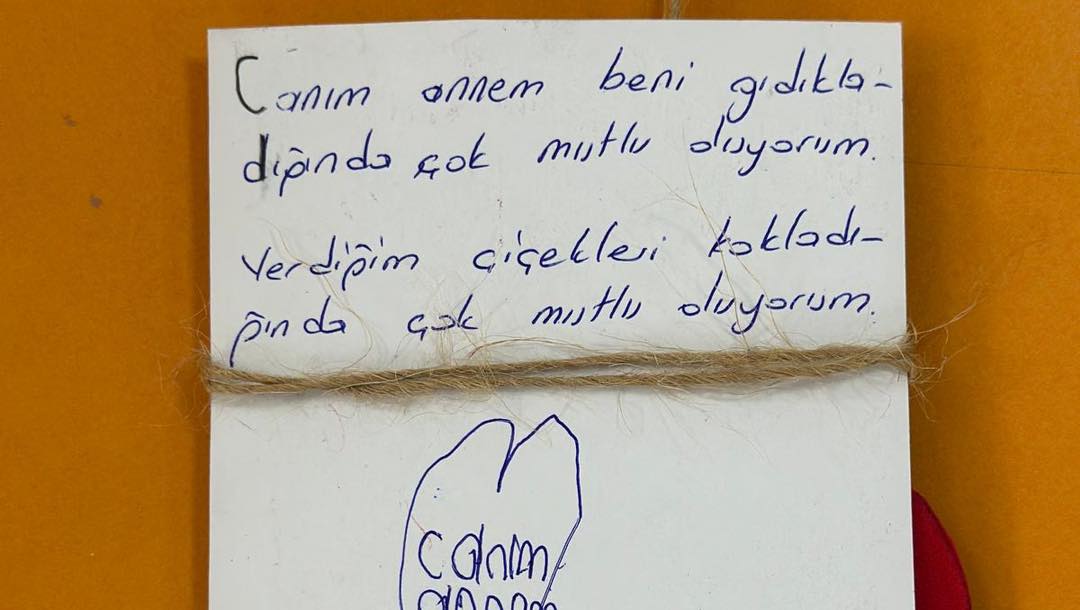 Canım annem beni gıdıkla-
dığında çok mutlu oluyorum.
Verdiğim çiçekleri kokladı-
ğında çok mutlu oluyorum.
canım
annem